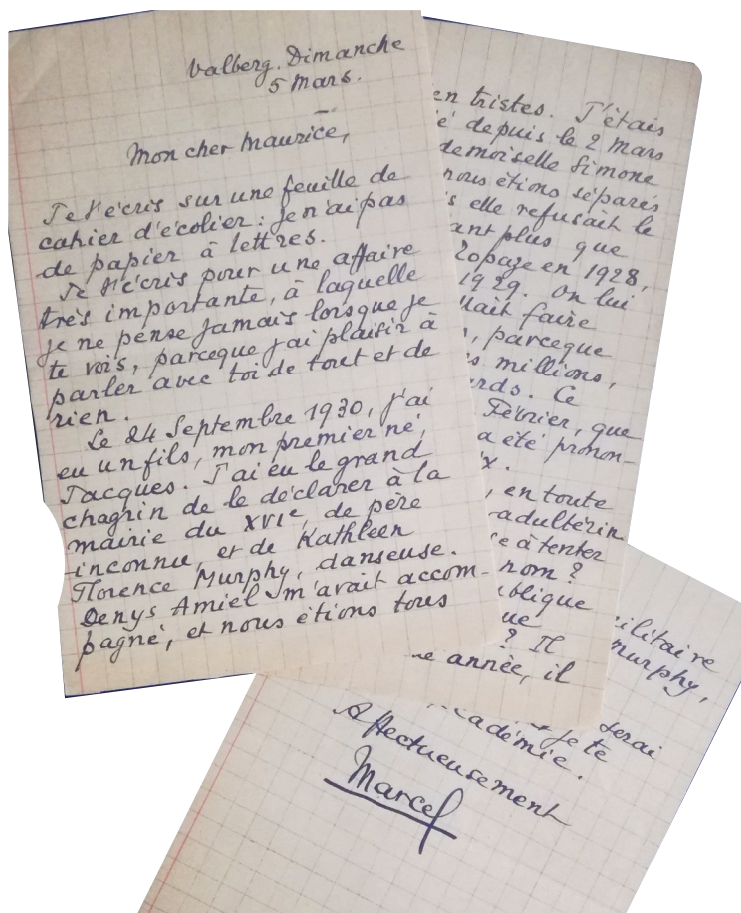 Valberg. Dimanche
5 Mars.
Mon cher Maurice,
Je t'écris sur une feuille de
cahier d'écolier : je n'ai pas
de papier à lettres.
Je t'écris pour une affaire
très importante, à laquelle
je ne pense jamais lorsque je
te vois, parceque j'ai plaisir à
parler avec toi de tout et de
rien.
Le 24 Septembre 1930, j'ai
eu un fils, mon premier né,
Jacques. J'ai eu le grand
chagrin de le déclarer à la
mairie du XVIe, de père
inconnu, et de Kathleen
Florence Murphy, danseuse.
Denys Amiel m'avait accom-
pagné, et nous étions tous
en tristes. J'étais
é depuis le 2 mars
demoiselle Simone
nous étions séparés
s elle refusait le
ant plus que
Topaze en 1928,
1929. On lui
llait faire
, parceque
s millions,
rds. Ce
Février, que
a été pronon-
x.
, en toute
adultérin
e à tenter
nom ?
blique
ue
? Il
e année, il
ilitaire
Murphy,
serai
je te
cadémie.
Affectueusement
Marcel